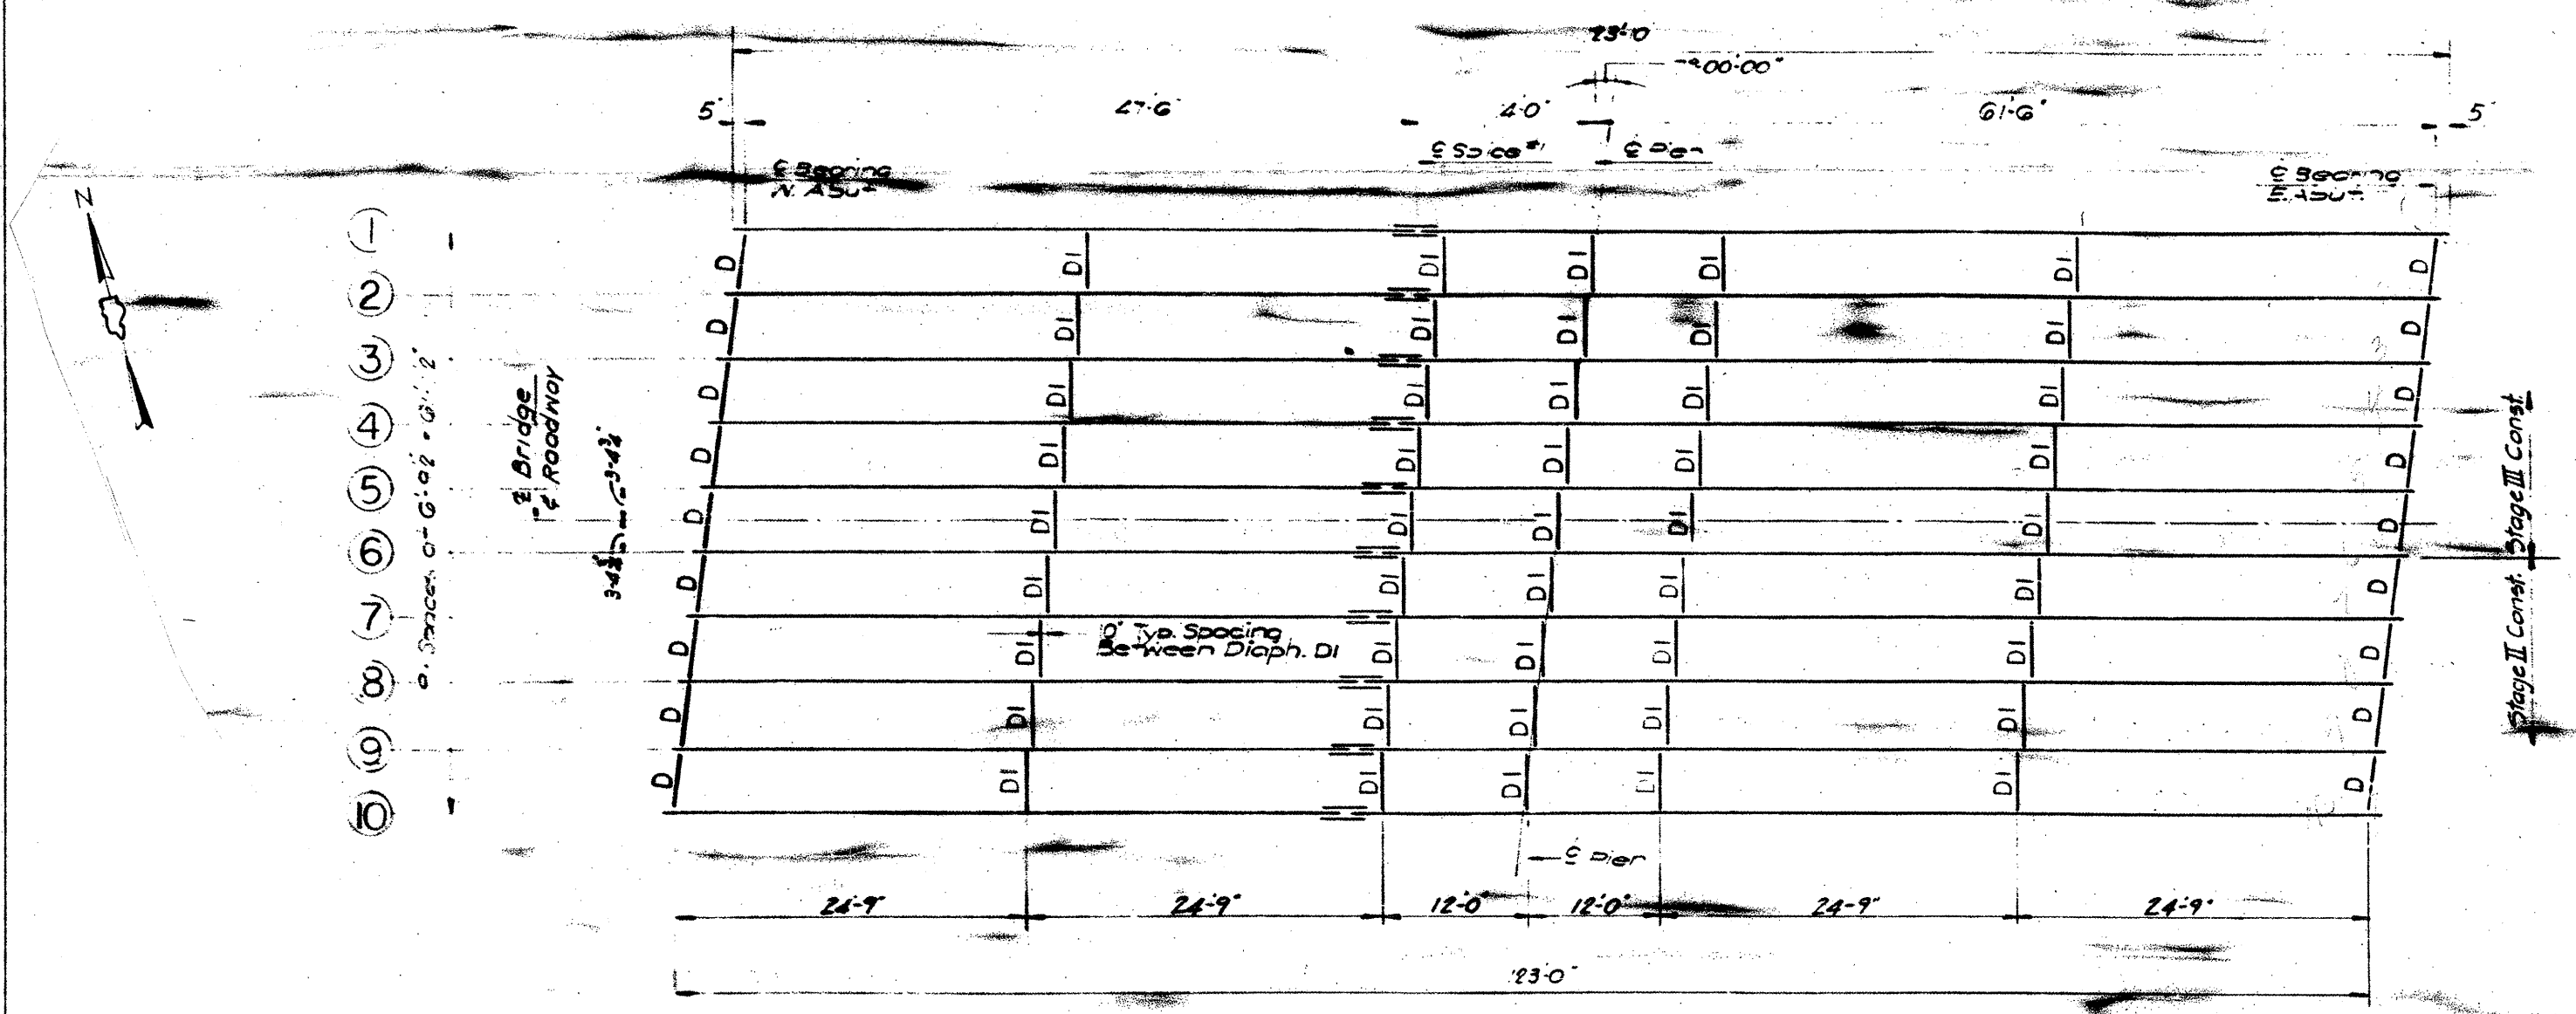 23'-0
00'-00"
5"
47'-6"
4'-0"
61'-6"
5"
℄ Splice #1
℄ Pier
℄ Bearing
N. Abut.
℄ Bearing
E. Abut.
N
1
2
3
4
5
6
7
8
9
10
℄ Bridge
& ℄ Roadway
3'-4¾"
3'-4¾"
D D1 D1 D1 D1 D1 D
D D1 D1 D1 D1 D1 D
D D1 D1 D1 D1 D1 D
D D1 D1 D1 D1 D1 D
D D1 D1 D1 D1 D1 D
D D1 D1 D1 D1 D1 D
D D1 D1 D1 D1 D1 D
D D1 D1 D1 D1 D1 D
D D1 D1 D1 D1 D1 D
Typ. Spacing
Between Diaph. D1
Stage III Const.
Stage II Const.
℄ Pier
24'-9"
24'-9"
12'-0"
12'-0"
24'-9"
24'-9"
23'-0"